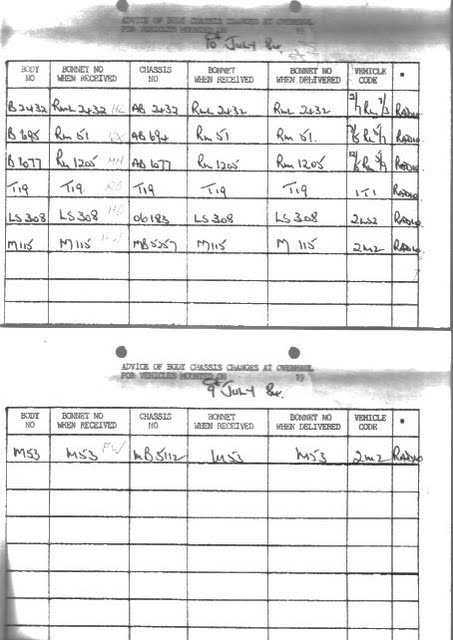 ADVICE OF BODY CHASSIS CHANGES AT OVERHAUL
FOR VEHICLES MOUNTED ON 19
To July 84.
BODY NO BONNET NO WHEN RECEIVED CHASSIS NO BONNET WHEN RECEIVED BONNET NO WHEN DELIVERED VEHICLE CODE *
B2432 RML 2432 AB 2432 RML 2432 RML 2432 RADIO
B695 RM 51 AB 694 RM 51 RM 51. RADIO
B1077 RM 1205 AB 1077 RM 1205 RM 1205 RADIO
T19 T19. T19 T19 T19 1T1 RADIO
LS308 LS308 06183 LS 308 LS 308 2LS2 RADIO
M115 M115 MB5257 M115 M 115 2M2 RADIO.
ADVICE OF BODY CHASSIS CHANGES AT OVERHAUL
FOR VEHICLES MOUNTED ON 19
9 July 84.
BODY NO BONNET NO WHEN RECEIVED CHASSIS NO BONNET WHEN RECEIVED BONNET NO WHEN DELIVERED VEHICLE CODE *
M53 M53 FW MB5112 M53 M53 2M2 RADIO